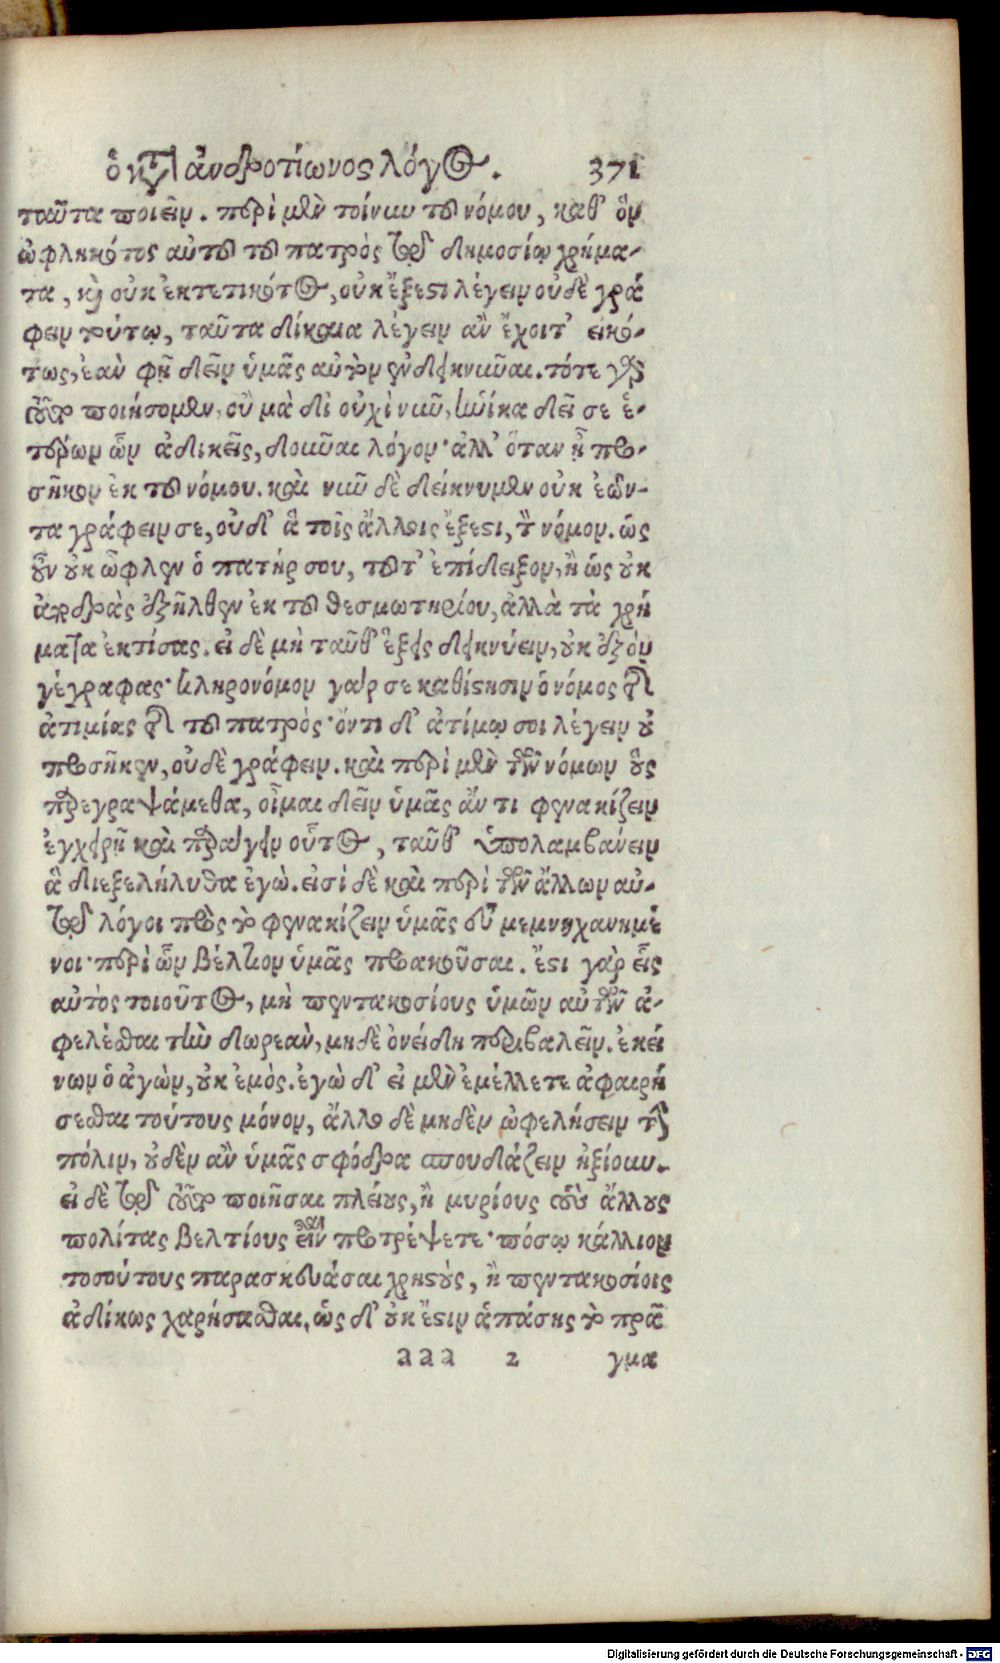 ὁ κατὰ ἀνδροτίωνος λόγος. 371
ταῦτα ποιεῖν. περὶ μὲν τοίνυν τοῦ νόμου, καθ' ὃν
ὠφληκότος αὐτοῦ τοῦ πατρὸς τῷ δημοσίῳ χρήμα-
τα, καὶ οὐκ ἐκτετικότος, οὐκ ἔξεστι λέγειν οὐδὲ γρά
φειν τούτῳ, ταῦτα δίκαια λέγειν ἂν ἔχοιτ' εἰκό-
τως, ἐὰν φῇ δεῖν ὑμᾶς αὐτὸν ἐνδεικνῦναι. τότε γὰρ
τοῦτο ποιήσομεν, οὐ μὰ δί οὐχὶ νῦν, ἡνίκα δεῖ σε ἑ-
τέρων ὧν ἀδικεῖς, δοῦναι λόγον· ἀλλ' ὅταν ᾖ προ-
σῆκον ἐκ τοῦ νόμου. καὶ νῦν δὲ δείκνυμεν οὐκ ἐῶν-
τα γράφειν σε, οὐδ' ἃ τοῖς ἄλλοις ἔξεστι, τὸν νόμον. ὡς
οὖν οὐκ ὦφλεν ὁ πατήρ σου, τοῦτ' ἐπίδειξον, ἢ ὡς οὐκ
ἀποδρὰς ἐξῆλθεν ἐκ τοῦ θεσμωτηρίου, ἀλλὰ τὰ χρή
ματα ἐκτίσας. εἰ δὲ μὴ ταῦθ' ἕξεις δεικνύειν, οὐκ ἐξὸν
γέγραφας· κληρονόμον γάρ σε καθίστησιν ὁ νόμος τῆς
ἀτιμίας τῆς τοῦ πατρὸς· ὄντι δ' ἀτίμῳ σοι λέγειν οὐ
προσῆκεν, οὐδὲ γράφειν. καὶ περὶ μὲν τῶν νόμων οὓς
παρεγραψάμεθα, οἶμαι δεῖν ὑμᾶς ἄν τι φενακίζειν
ἐγχειρῇ καὶ παράγειν οὗτος, ταῦθ' ὑπολαμβάνειν
ἃ διεξελήλυθα ἐγὼ. εἰσὶ δὲ καὶ περὶ τῶν ἄλλων αὐ-
τῷ λόγοι πρὸς τὸ φενακίζειν ὑμᾶς εὖ μεμηχανημέ
νοι· περὶ ὧν βέλτιον ὑμᾶς προακοῦσαι. ἔστι γὰρ εἷς
αὐτὸς τοιοῦτος, μὴ πεντακοσίους ὑμῶν αὐτῶν ἀ-
φελέσθαι τὴν δωρεὰν, μηδὲ ὀνείδη περιβαλεῖν. ἐκεί
νων ὁ ἀγὼν, οὐκ ἐμός. ἐγὼ δ' εἰ μὲν ἐμέλλετε ἀφαιρή
σεσθαι τούτους μόνον, ἄλλο δὲ μηδὲν ὠφελήσειν τὴν
πόλιν, οὐδὲν ἂν ὑμᾶς σφόδρα σπουδάζειν ἠξίουν.
εἰ δὲ τῷ τοῦτο ποιῆσαι πλείους, ἢ μυρίους τοὺς ἄλλους
πολίτας βελτίους εἶναι προτρέψετε· πόσῳ κάλλιον
τοσούτους παρασκευάσαι χρηστοὺς, ἢ πεντακοσίοις
ἀδίκως χαρίσασθαι, ὡς δ' οὐκ ἔστιν ἁπάσης τὸ πρᾶ
aaa 2 γμα
Digitalisierung gefördert durch die Deutsche Forschungsgemeinschaft - DFG